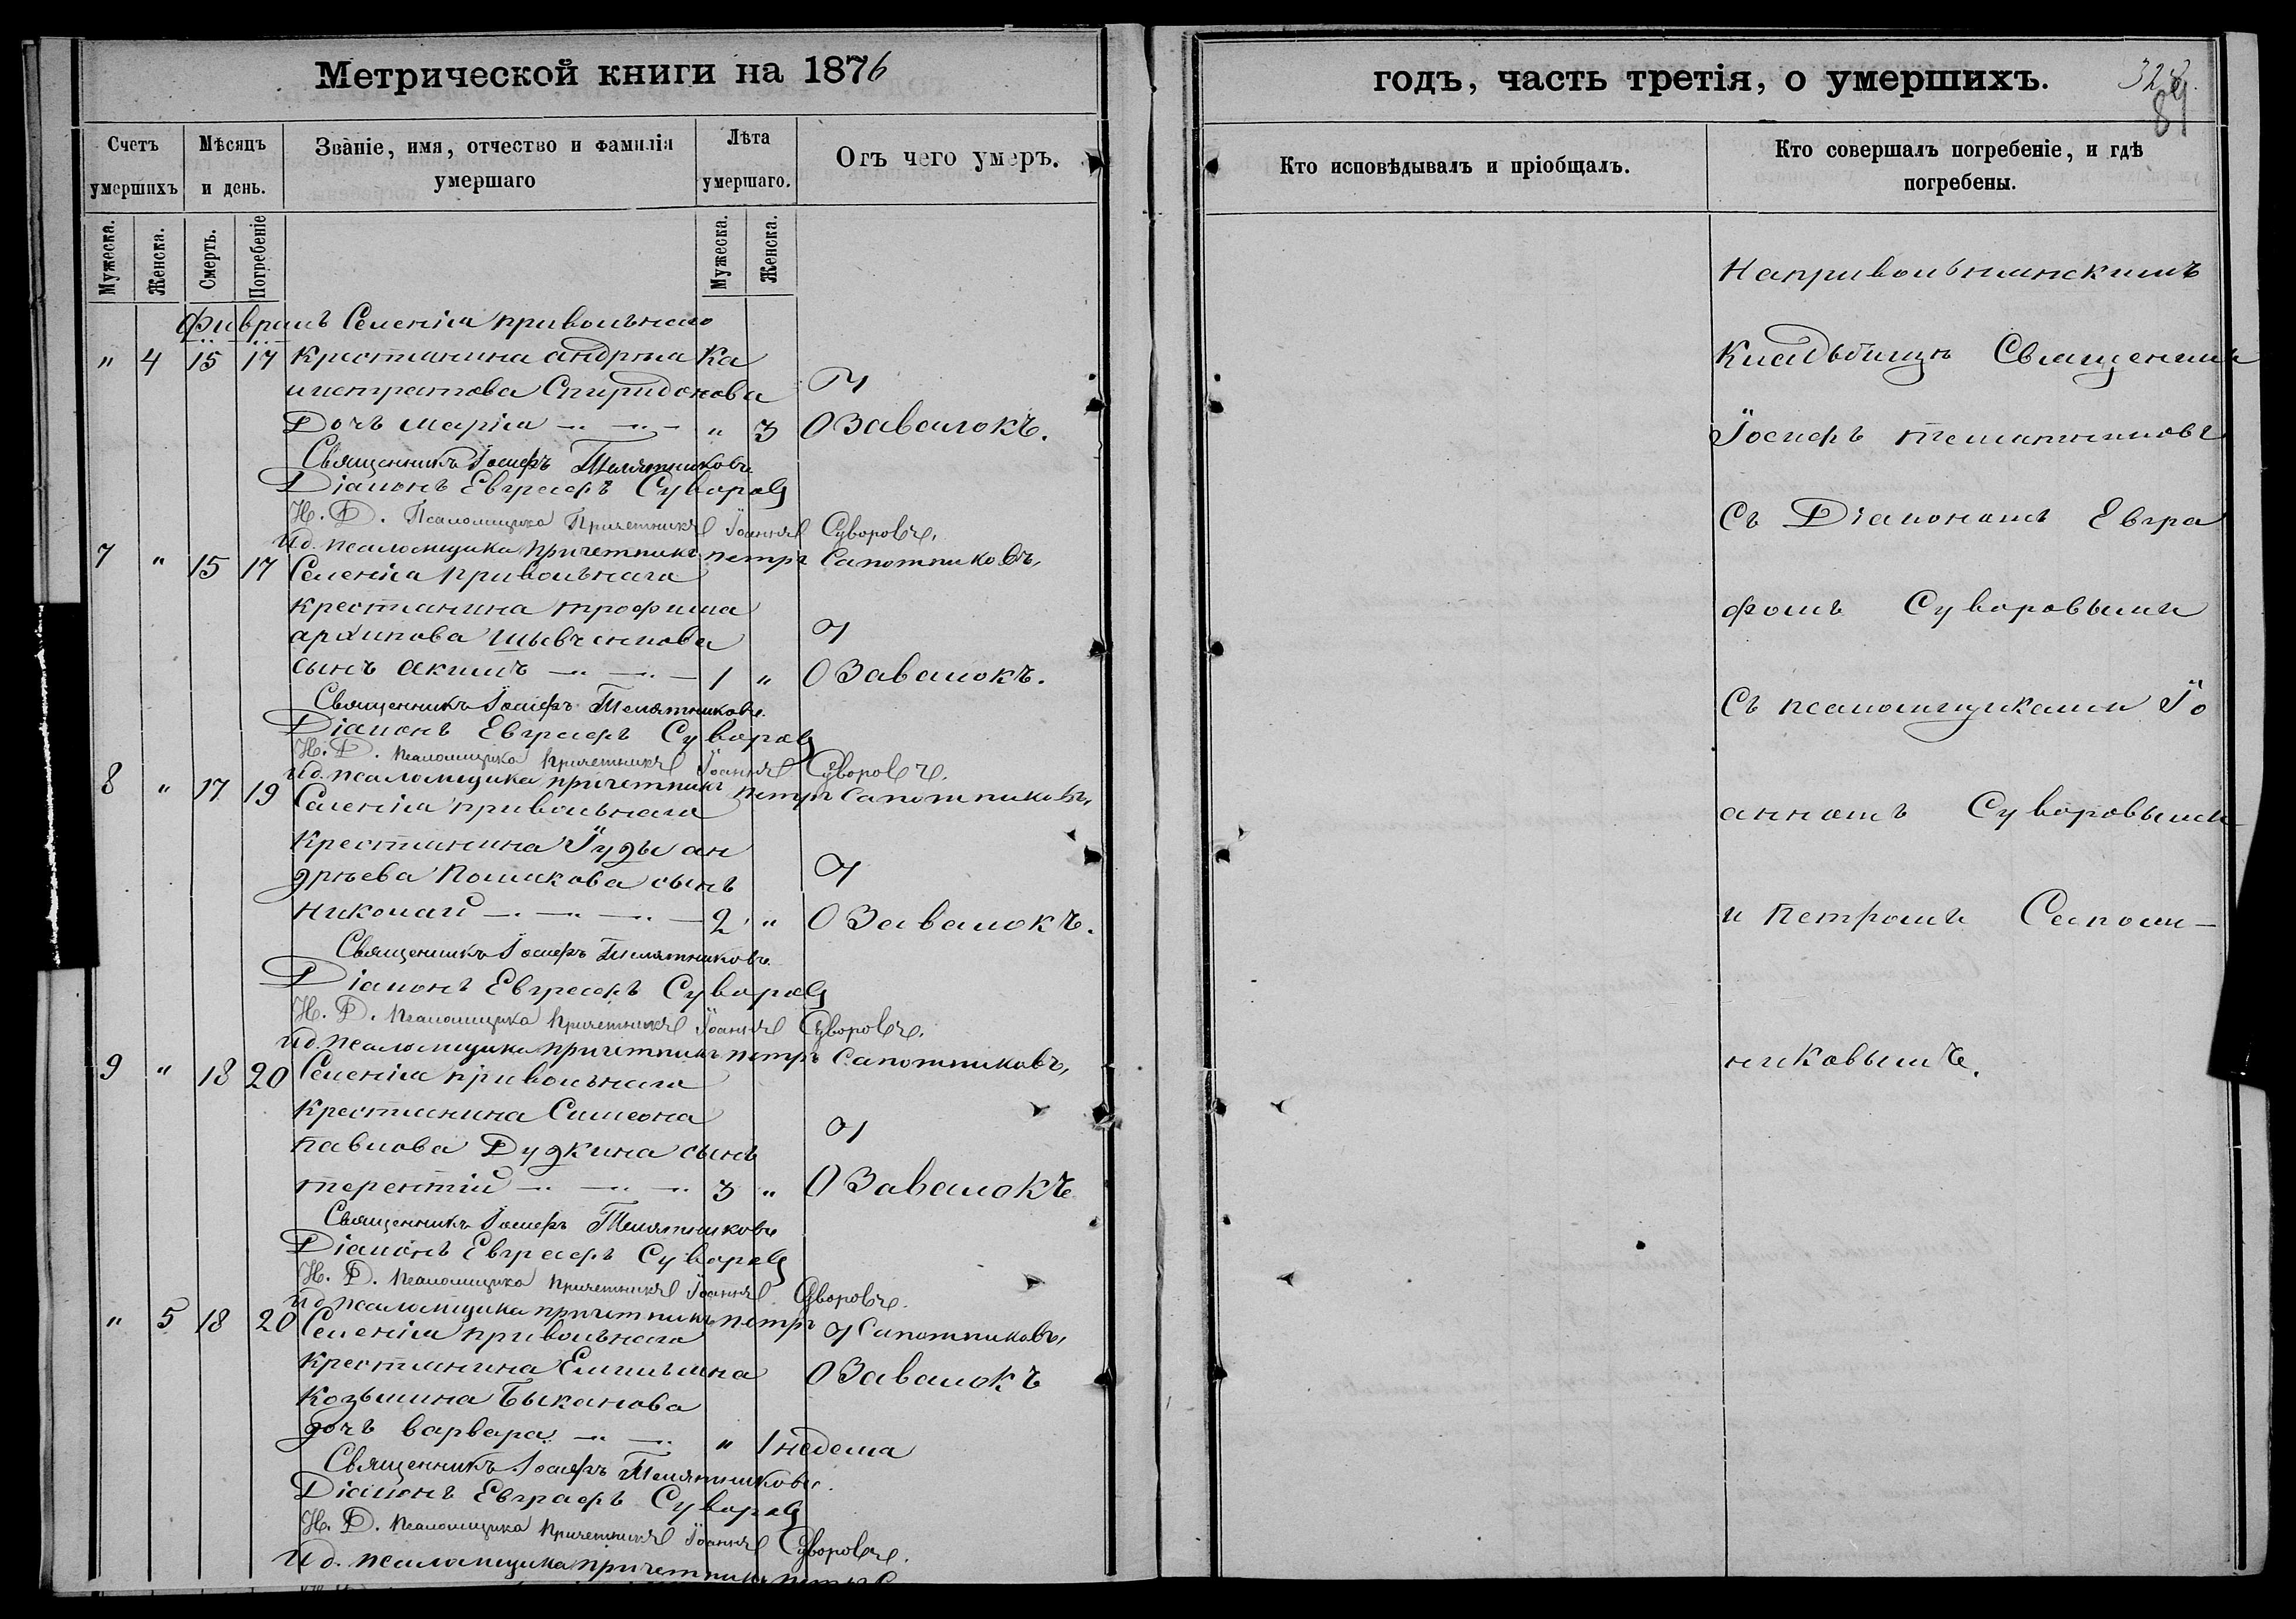 Метрической книги на 1876
Счетъ умершихъ
Мѣсяцъ и день.
Званіе, имя, отчество и фамилія умершаго
Лѣта умершаго.
Отъ чего умеръ.
Мужеска.
Женска.
Смерть.
Погребеніе
Мужеска.
Женска.
Февраль Селенія привольнаго
" 4 15 17 крестьянина андрѣя Ка
Спиридонова
Дочъ марія " 3 О Завалокъ.
Священникъ Іосифъ Телятниковъ
Діаконъ Евграфъ Суворовъ
И. Д. Псаломщика Причетникъ Іоаннъ Суворовъ.
И д. псаломщика причетникъ петръ Сапожниковъ,
7 " 15 17 Селенія Привольнаго
крестьянина трофима
архипова Шывченкова
сынъ акимъ 1 " О Завалокъ.
Священникъ Іосифъ Телятниковъ.
Діаконъ Евграфъ Суворовъ
И. Д. псаломщика причетникъ Іоаннъ Суворовъ.
И д. псаломщика причетникъ петръ Сапожниковъ,
8 " 17 19 Селенія привольнаго
крестьянина Іуды ан
дрѣева Полякова сынъ
николай 2 " О Завалокъ.
Священникъ Іосифъ Телятниковъ.
Діаконъ Евграфъ Суворовъ
И. Д. псаломщика причетникъ Іоаннъ Суворовъ.
И д. псаломщика причетникъ петръ Сапожниковъ,
9 " 18 20 Селенія привольнаго
крестьянина Симеона
павлова Дудкина сынъ
терентій 3 " О Завалокъ
Священникъ Іосифъ Телятниковъ
Діаконъ Евграфъ Суворовъ
И. Д. псаломщика причетникъ Іоаннъ Суворовъ.
И д. псаломщика причетникъ петръ Сапожниковъ,
" 5 18 20 Селенія привольнаго
крестьянина Емильяна О Завалокъ
Козьмина Быканова
дочъ варвара " 1 недѣля
Священникъ Іосифъ Телятниковъ.
Діаконъ Евграфъ Суворовъ
И. Д. псаломщика причетникъ Іоаннъ Суворовъ.
И д. псаломщика причетникъ петръ С
годъ, часть третія, о умершихъ.
89
Кто исповѣдывалъ и пріобщалъ.
Кто совершалъ погребеніе, и гдѣ погребены.
На привольнянскимъ
Кладьбищѣ Священникъ
Іосифъ телятниковъ
Съ Діакономъ Евгра
фомъ Суворовымъ
Съ псаломщиками Іо
анномъ Суворовымъ
и Петромъ Сапож-
никовымъ.